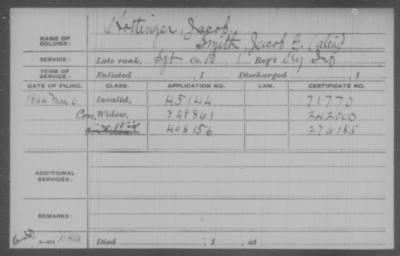 NAME OF SOLDIER: Hottinger, Jacob.
Smith, Jacob (alias)
SERVICE: Late rank, Sgt Co. Reg't Inf
TERM OF SERVICE: Enlisted , 1 Discharged , 1
DATE OF FILING. CLASS. APPLICATION NO. LAW. CERTIFICATE NO.
1864 Mar 6 Invalid, 45144 71772
Con Widow, 328861 242000
406156 276185
ADDITIONAL SERVICES:
REMARKS:
Died , 1 , at